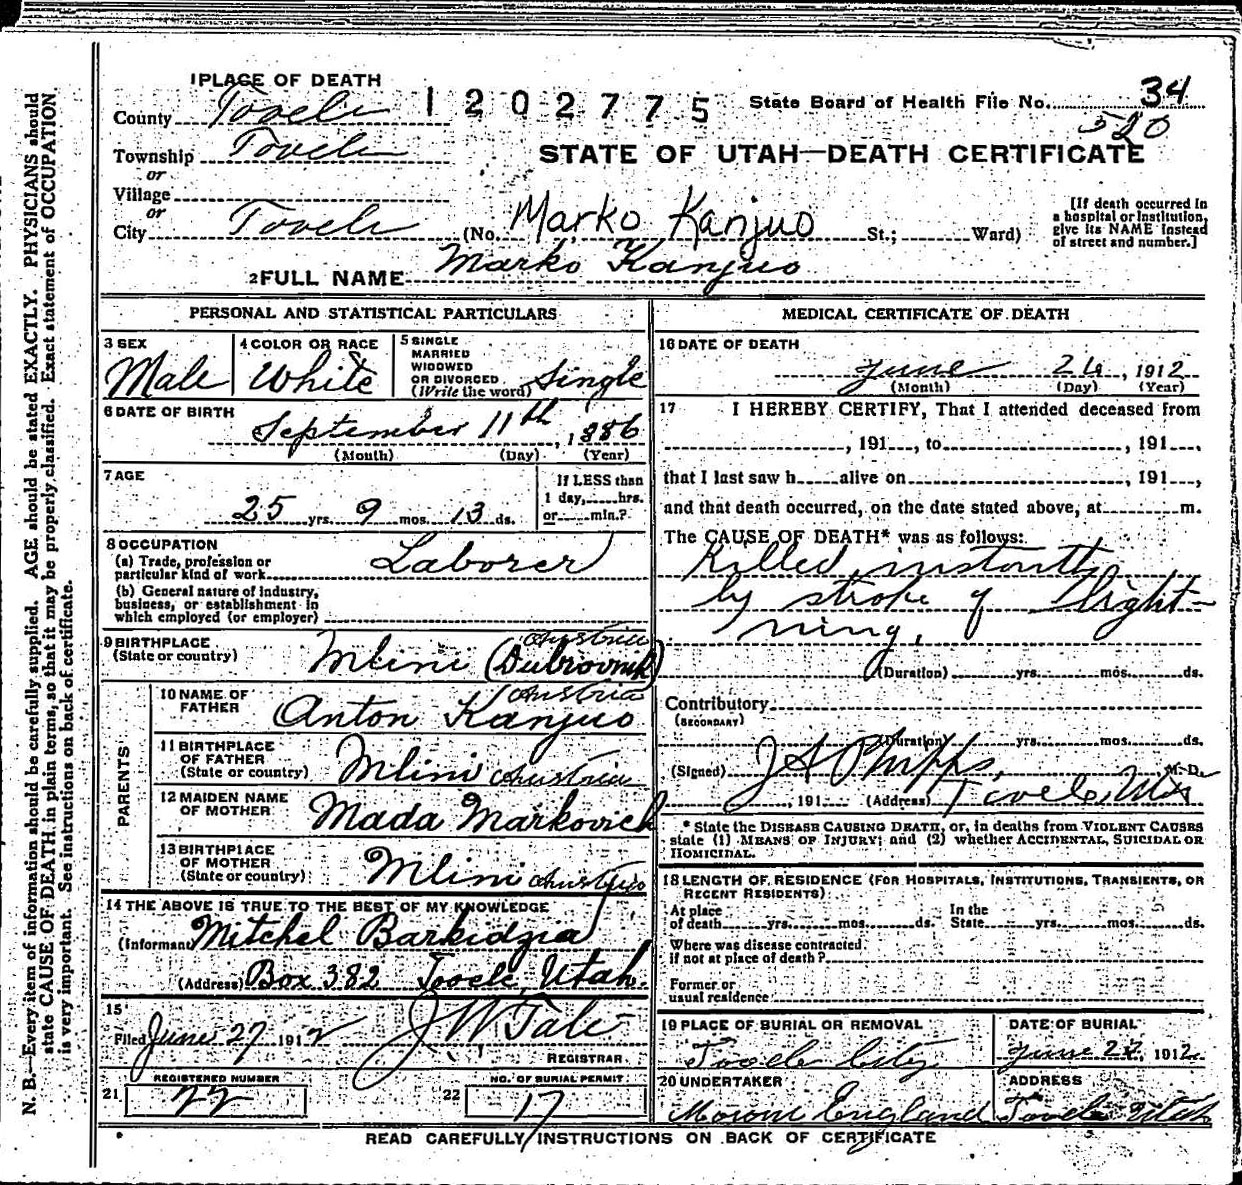 1 PLACE OF DEATH
County Tooele
1202775
State Board of Health File No. 34
520
Township Tooele
STATE OF UTAH—DEATH CERTIFICATE
or
Village
or
City Tooele (No. Marko Kanjuo St.; Ward)
[If death occurred in a hospital or institution, give its NAME instead of street and number.]
2 FULL NAME Marko Kanjuo
PERSONAL AND STATISTICAL PARTICULARS
3 SEX
Male
4 COLOR OR RACE
White
5 SINGLE
MARRIED
WIDOWED
OR DIVORCED
(Write the word) Single
6 DATE OF BIRTH
September 11th, 1886
(Month) (Day) (Year)
7 AGE
25 yrs. 9 mos. 13 ds.
If LESS than
1 day, hrs.
or min.?
8 OCCUPATION
(a) Trade, profession or
particular kind of work Laborer
(b) General nature of industry,
business, or establishment in
which employed (or employer)
9 BIRTHPLACE
(State or country) Mlini (Dubrovnik) Austria
PARENTS
10 NAME OF
FATHER Anton Kanjuo
Austria
11 BIRTHPLACE
OF FATHER
(State or country) Mlini Austria
12 MAIDEN NAME
OF MOTHER Mada Markovich
13 BIRTHPLACE
OF MOTHER
(State or country) Mlini Austria
14 THE ABOVE IS TRUE TO THE BEST OF MY KNOWLEDGE
(Informant Mitchel Barkidzia)
(Address) Box 382 Tooele, Utah.
15
Filed June 27 1912 J W Tate
REGISTRAR
21 REGISTERED NUMBER
22
22 NO. OF BURIAL PERMIT
17
MEDICAL CERTIFICATE OF DEATH
16 DATE OF DEATH
June 24, 1912
(Month) (Day) (Year)
17 I HEREBY CERTIFY, That I attended deceased from
, 191 , to , 191 ,
that I last saw h alive on , 191 ,
and that death occurred, on the date stated above, at m.
The CAUSE OF DEATH* was as follows:
Killed instantly
by stroke of light-
ning.
(Duration) yrs. mos. ds.
Contributory
(SECONDARY)
(Duration) yrs. mos. ds.
(Signed) J A Phipps, M. D.
, 191 (Address) Tooele, Utah
* State the DISEASE CAUSING DEATH, or, in deaths from VIOLENT CAUSES
state (1) MEANS OF INJURY; and (2) whether ACCIDENTAL, SUICIDAL OR
HOMICIDAL.
18 LENGTH OF RESIDENCE (FOR HOSPITALS, INSTITUTIONS, TRANSIENTS, OR
RECENT RESIDENTS)
At place
of death yrs. mos. ds.
In the
State yrs. mos. ds.
Where was disease contracted
if not at place of death?
Former or
usual residence
19 PLACE OF BURIAL OR REMOVAL
Tooele City
DATE OF BURIAL
June 27, 1912
20 UNDERTAKER
Moroni England
ADDRESS
Tooele Utah
READ CAREFULLY INSTRUCTIONS ON BACK OF CERTIFICATE
N. B.—Every item of information should be carefully supplied. AGE should be stated EXACTLY. PHYSICIANS should
state CAUSE OF DEATH in plain terms, so that it may be properly classified. Exact statement of OCCUPATION
is very important. See instructions on back of certificate.